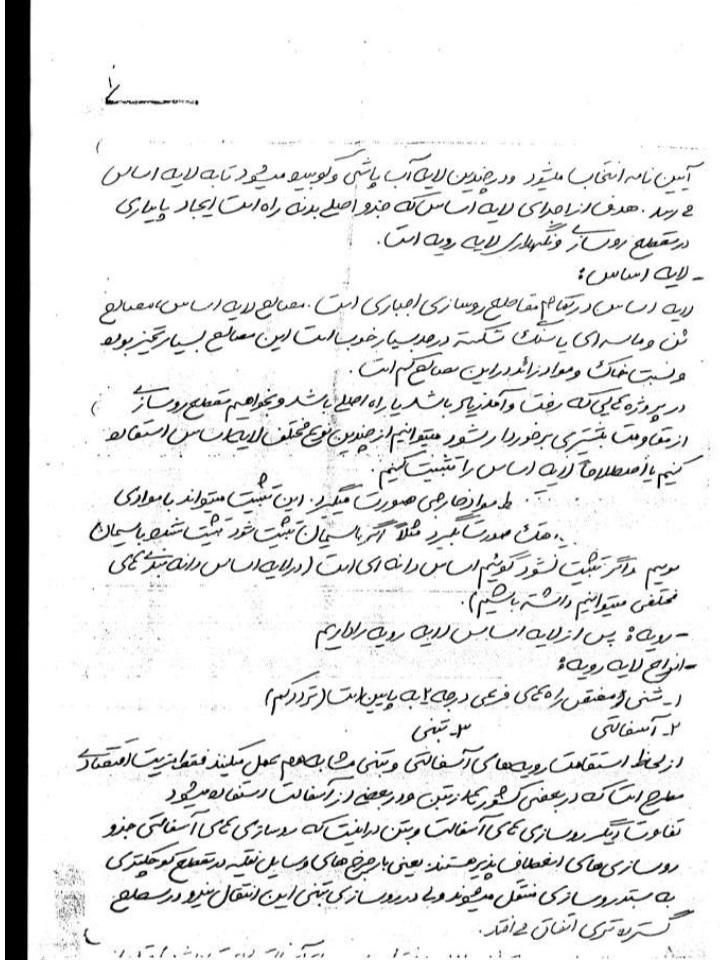 ۱
آیین نامه انتخاب میشود و در چندین لایه آب پاشی و کوبیده میشود تا به لایه اساس
می رسد. هدف از اجرای لایه اساس که جزو اصلی بدنه راه است ایجاد پایداری
در مقطع روسازی و نگهداری لایه رویه است.
- لایه اساس:
لایه اساس در تمام مقاطع روسازی اجباری است. مصالح لایه اساس، مصالح
شن و ماسه ای یا سنگ شکسته درجه بسیار خوب است این مصالح بسیار تمیز بوده
و نسبت خاک و مواد زائد در این مصالح کم است.
در پروژه هایی که رفت و آمد زیاد باشد یا راه اصلی باشد و بخواهیم مقطع روسازی
از مقاومت بیشتری برخوردار شود میتوانیم از چندین نوع مختلف لایه اساس استفاده
کنیم یا اصطلاحاً لایه اساس را تثبیت کنیم.
مواد خارجی صورت میگیرد. این تثبیت میتواند با موادی
صورت بگیرد مثلاً اگر با سیمان تثبیت شود تثبیت شده با سیمان
گوییم و اگر تثبیت نشود گوئیم اساس دانه ای است (در لایه اساس دانه بندی های
مختلفی میتوانیم داشته باشیم).
- رویه: پس از لایه اساس لایه رویه را داریم
- انواع لایه رویه:
۱- شنی مختص راه های فرعی درجه ۲ به پایین است (تردد کم)
۲- آسفالتی ۳- بتنی
از لحاظ استقامت رویه های آسفالتی و بتنی مشابه هم عمل میکنند فقط مزیت اقتصادی
مطرح است که در بعضی کشورها از بتن و در بعضی از آسفالت استفاده میشود
تفاوت دیگر روسازی های آسفالت و بتن در اینست که روسازی های آسفالتی جزو
روسازی های انعطاف پذیر هستند. یعنی بار چرخ های وسایل نقلیه در مقطع کوچکتری
به بستر روسازی منتقل میشوند ولی در روسازی بتنی این انتقال نیرو در سطح
گسترده تری اتفاق می افتد.